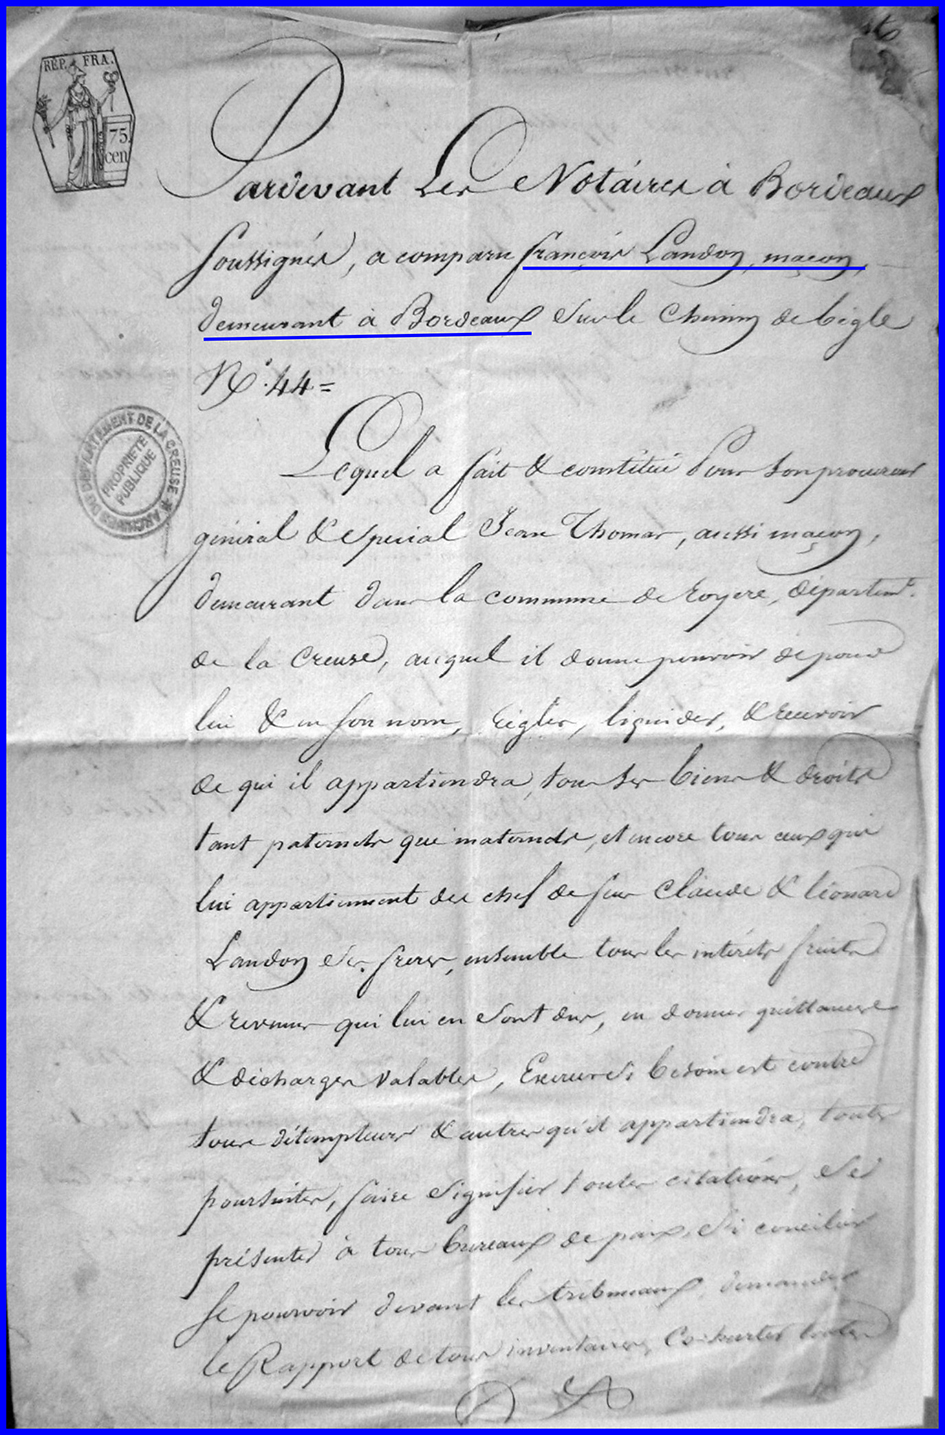 REP. FRA.
75
cen
Pardevant Les Notaires à Bordeaux
soussignés, a comparu françois Landon, maçon,
demeurant à Bordeaux sur le chemin de bègle
N°. 44=
ARCHIVES DU DÉPARTEMENT DE LA CREUSE
PROPRIETE
PUBLIQUE
Lequel a fait & constitué Pour son procureur
général & spécial Jean Thomas, aussi maçon,
demeurant dans la commune de Royere, départemt.
de la Creuse, auquel il donne pouvoir de pour
lui & en son nom, Régler, liquider, & Recevoir
de qui il appartiendra, tous ses biens & droits
tant paternels que maternels, et encore tous ceux qui
lui appartiennent du chef de feus Claude & léonard
Landon ses freres, ensemble tous les intérêts fruits
& revenus qui lui en sont dus, en donner quittances
& décharges valables, Exercer si besoin est contre
tous détempteurs & autres qu'il appartiendra, toutes
poursuites, faire signifier toutes citations, se
présenter à tous bureaux de paix, s'i concilier
se pourvoir devant les tribunaux, demander
le Rapport de tous inventaires, Contester toutes